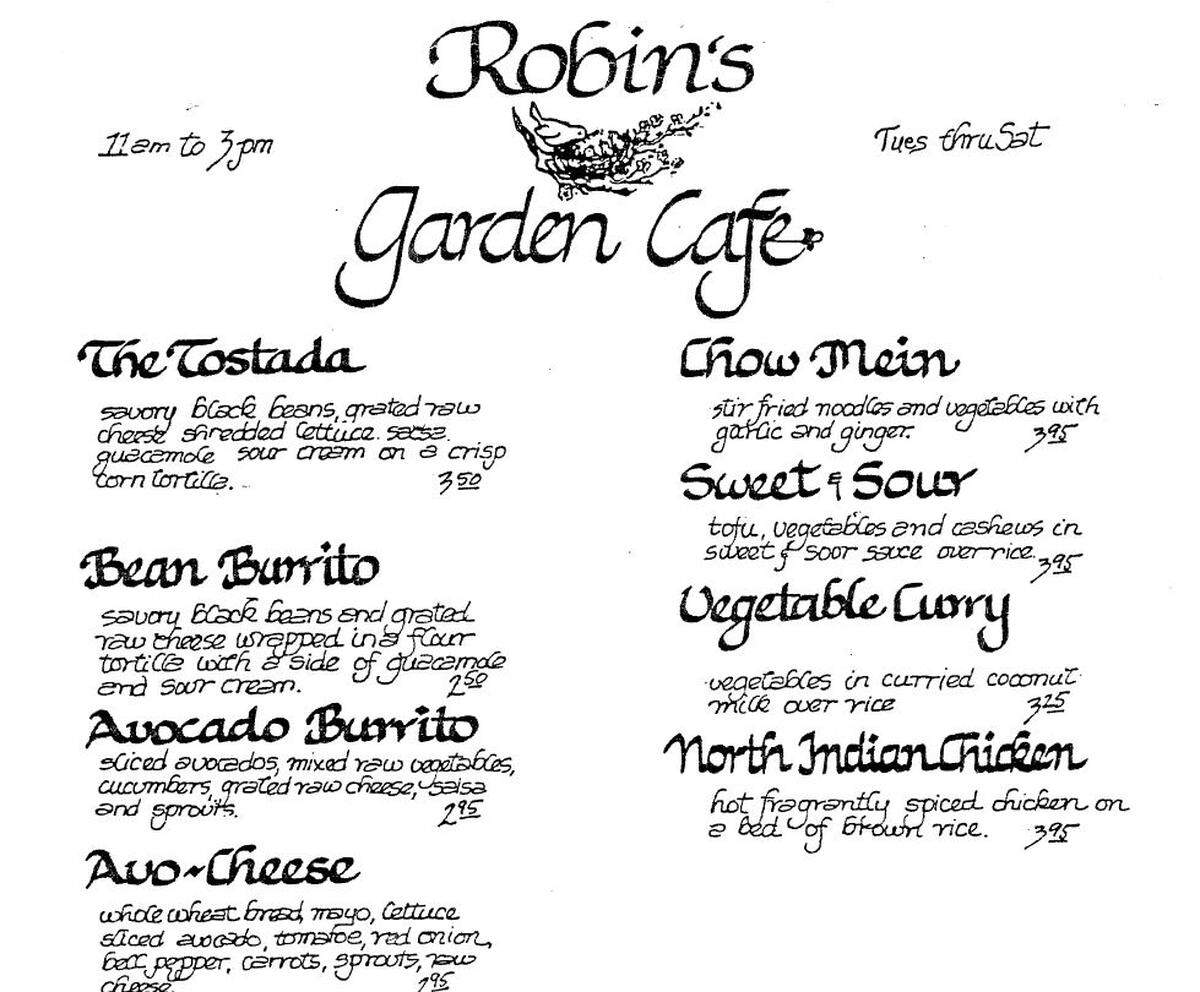 Robin's
11am to 3pm
Tues thru Sat
Garden Cafe
The Tostada
savory black beans, grated raw
cheese shredded lettuce. salsa.
guacamole sour cream on a crisp
corn tortilla.
3.50
Bean Burrito
savory black beans and grated
raw cheese wrapped in a flour
tortilla with a side of guacamole
and sour cream.
2.50
Avocado Burrito
sliced avocados, mixed raw vegetables,
cucumbers, grated raw cheese, salsa
and sprouts.
2.95
Avo-Cheese
whole wheat bread, mayo, lettuce
sliced avocado, tomatoe, red onion,
bell pepper, carrots, sprouts, raw
cheese.
Chow Mein
stir fried noodles and vegetables with
garlic and ginger.
3.95
Sweet & Sour
tofu, vegetables and cashews in
sweet & soor sauce over rice.
3.95
Vegetable Curry
vegetables in curried coconut
milk over rice
North Indian Chicken
hot fragrantly spiced chicken on
a bed of brown rice.
3.95